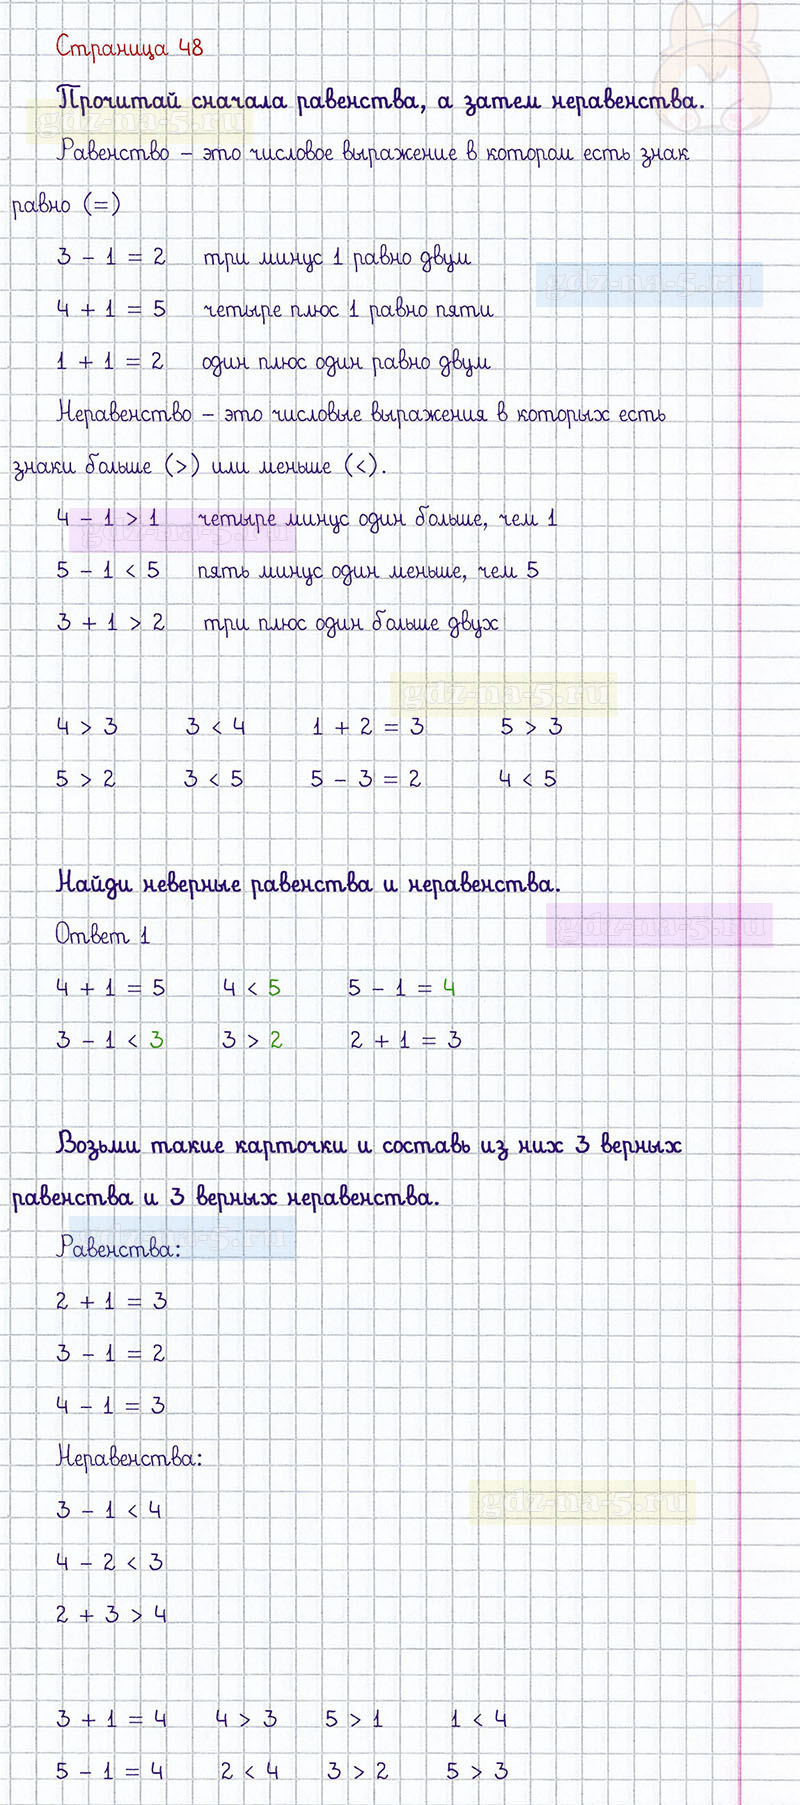 Страница 48
Прочитай сначала равенства, а затем неравенства.
gdz-na-5.ru
Равенство – это числовое выражение в котором есть знак
равно (=)
3 – 1 = 2 три минус 1 равно двум
gdz-na-5.ru
4 + 1 = 5 четыре плюс 1 равно пяти
1 + 1 = 2 один плюс один равно двум
Неравенство – это числовые выражения в которых есть
знаки больше (>) или меньше (<).
4 – 1 > 1 четыре минус один больше, чем 1
gdz-na-5.ru
5 – 1 < 5 пять минус один меньше, чем 5
3 + 1 > 2 три плюс один больше двух
gdz-na-5.ru
4 > 3 3 < 4 1 + 2 = 3 5 > 3
5 > 2 3 < 5 5 – 3 = 2 4 < 5
Найди неверные равенства и неравенства.
gdz-na-5.ru
Ответ 1
4 + 1 = 5 4 < 5 5 – 1 = 4
3 – 1 < 3 3 > 2 2 + 1 = 3
Возьми такие карточки и составь из них 3 верных
равенства и 3 верных неравенства.
gdz-na-5.ru
Равенства:
2 + 1 = 3
3 – 1 = 2
4 – 1 = 3
Неравенства:
gdz-na-5.ru
3 – 1 < 4
4 – 2 < 3
2 + 3 > 4
3 + 1 = 4 4 > 3 5 > 1 1 < 4
5 – 1 = 4 2 < 4 3 > 2 5 > 3